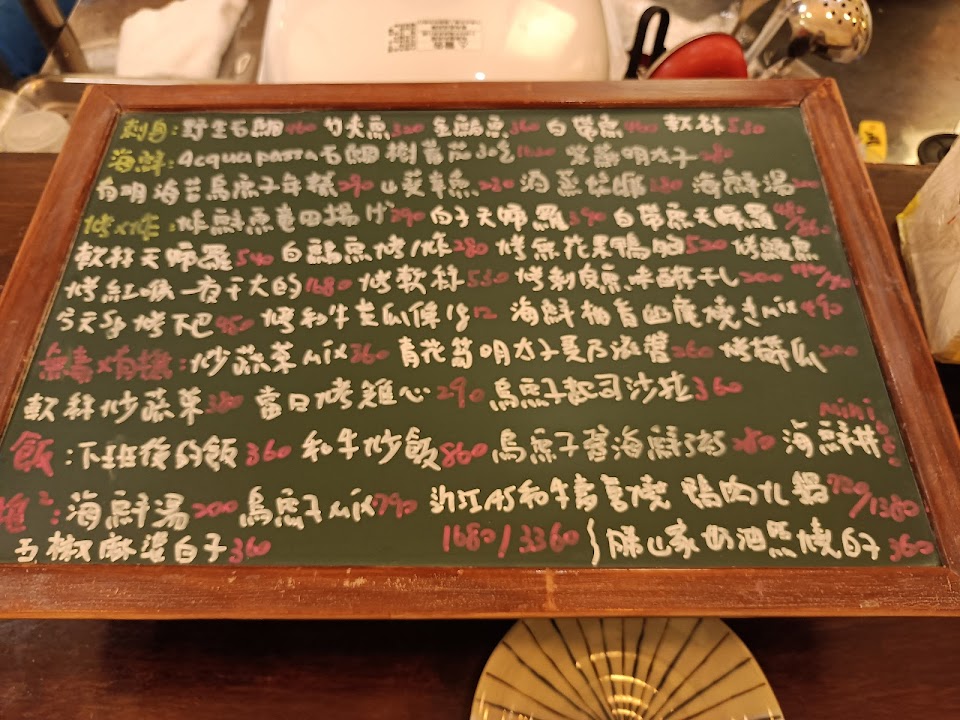 刺身:野生石鯛460 竹夾魚320 金鯧魚360 白帶魚460 軟絲530
海鮮:Acqua pazza石鯛樹番茄 1680 紫蘇明太子280
有明海苔烏魚子年糕290 山葵章魚280 酒蒸蛤蜊380 海鮮湯200
烤x炸:炸鮮魚竜田揚げ390 白子天婦羅390 白帶魚天婦羅480/860
軟絲天婦羅540 白鯧魚烤/炸280 烤無花果鴨胸520 烤鰻魚
烤紅喉一夜干大的1680 烤軟絲530 烤刺皮魚味醂干し200
今天SP烤下巴450 烤和牛 海鮮柚香幽庵燒きmix490
無毒x有機:炒蔬菜mix360 青花筍明太子美乃滋醬260 烤櫛瓜200
軟絲炒蔬菜380 當日烤雞心290 烏魚子起司沙拉360
飯:下班後的飯360 和牛炒飯860 烏魚子醬海鮮粥380 海鮮丼 mini
推:海鮮湯200 烏魚子mix790 近江A5和牛壽喜燒 鴨肉丸鍋720/1380
五椒麻婆白子360 1680/3360 勝山家奶油照燒白子360